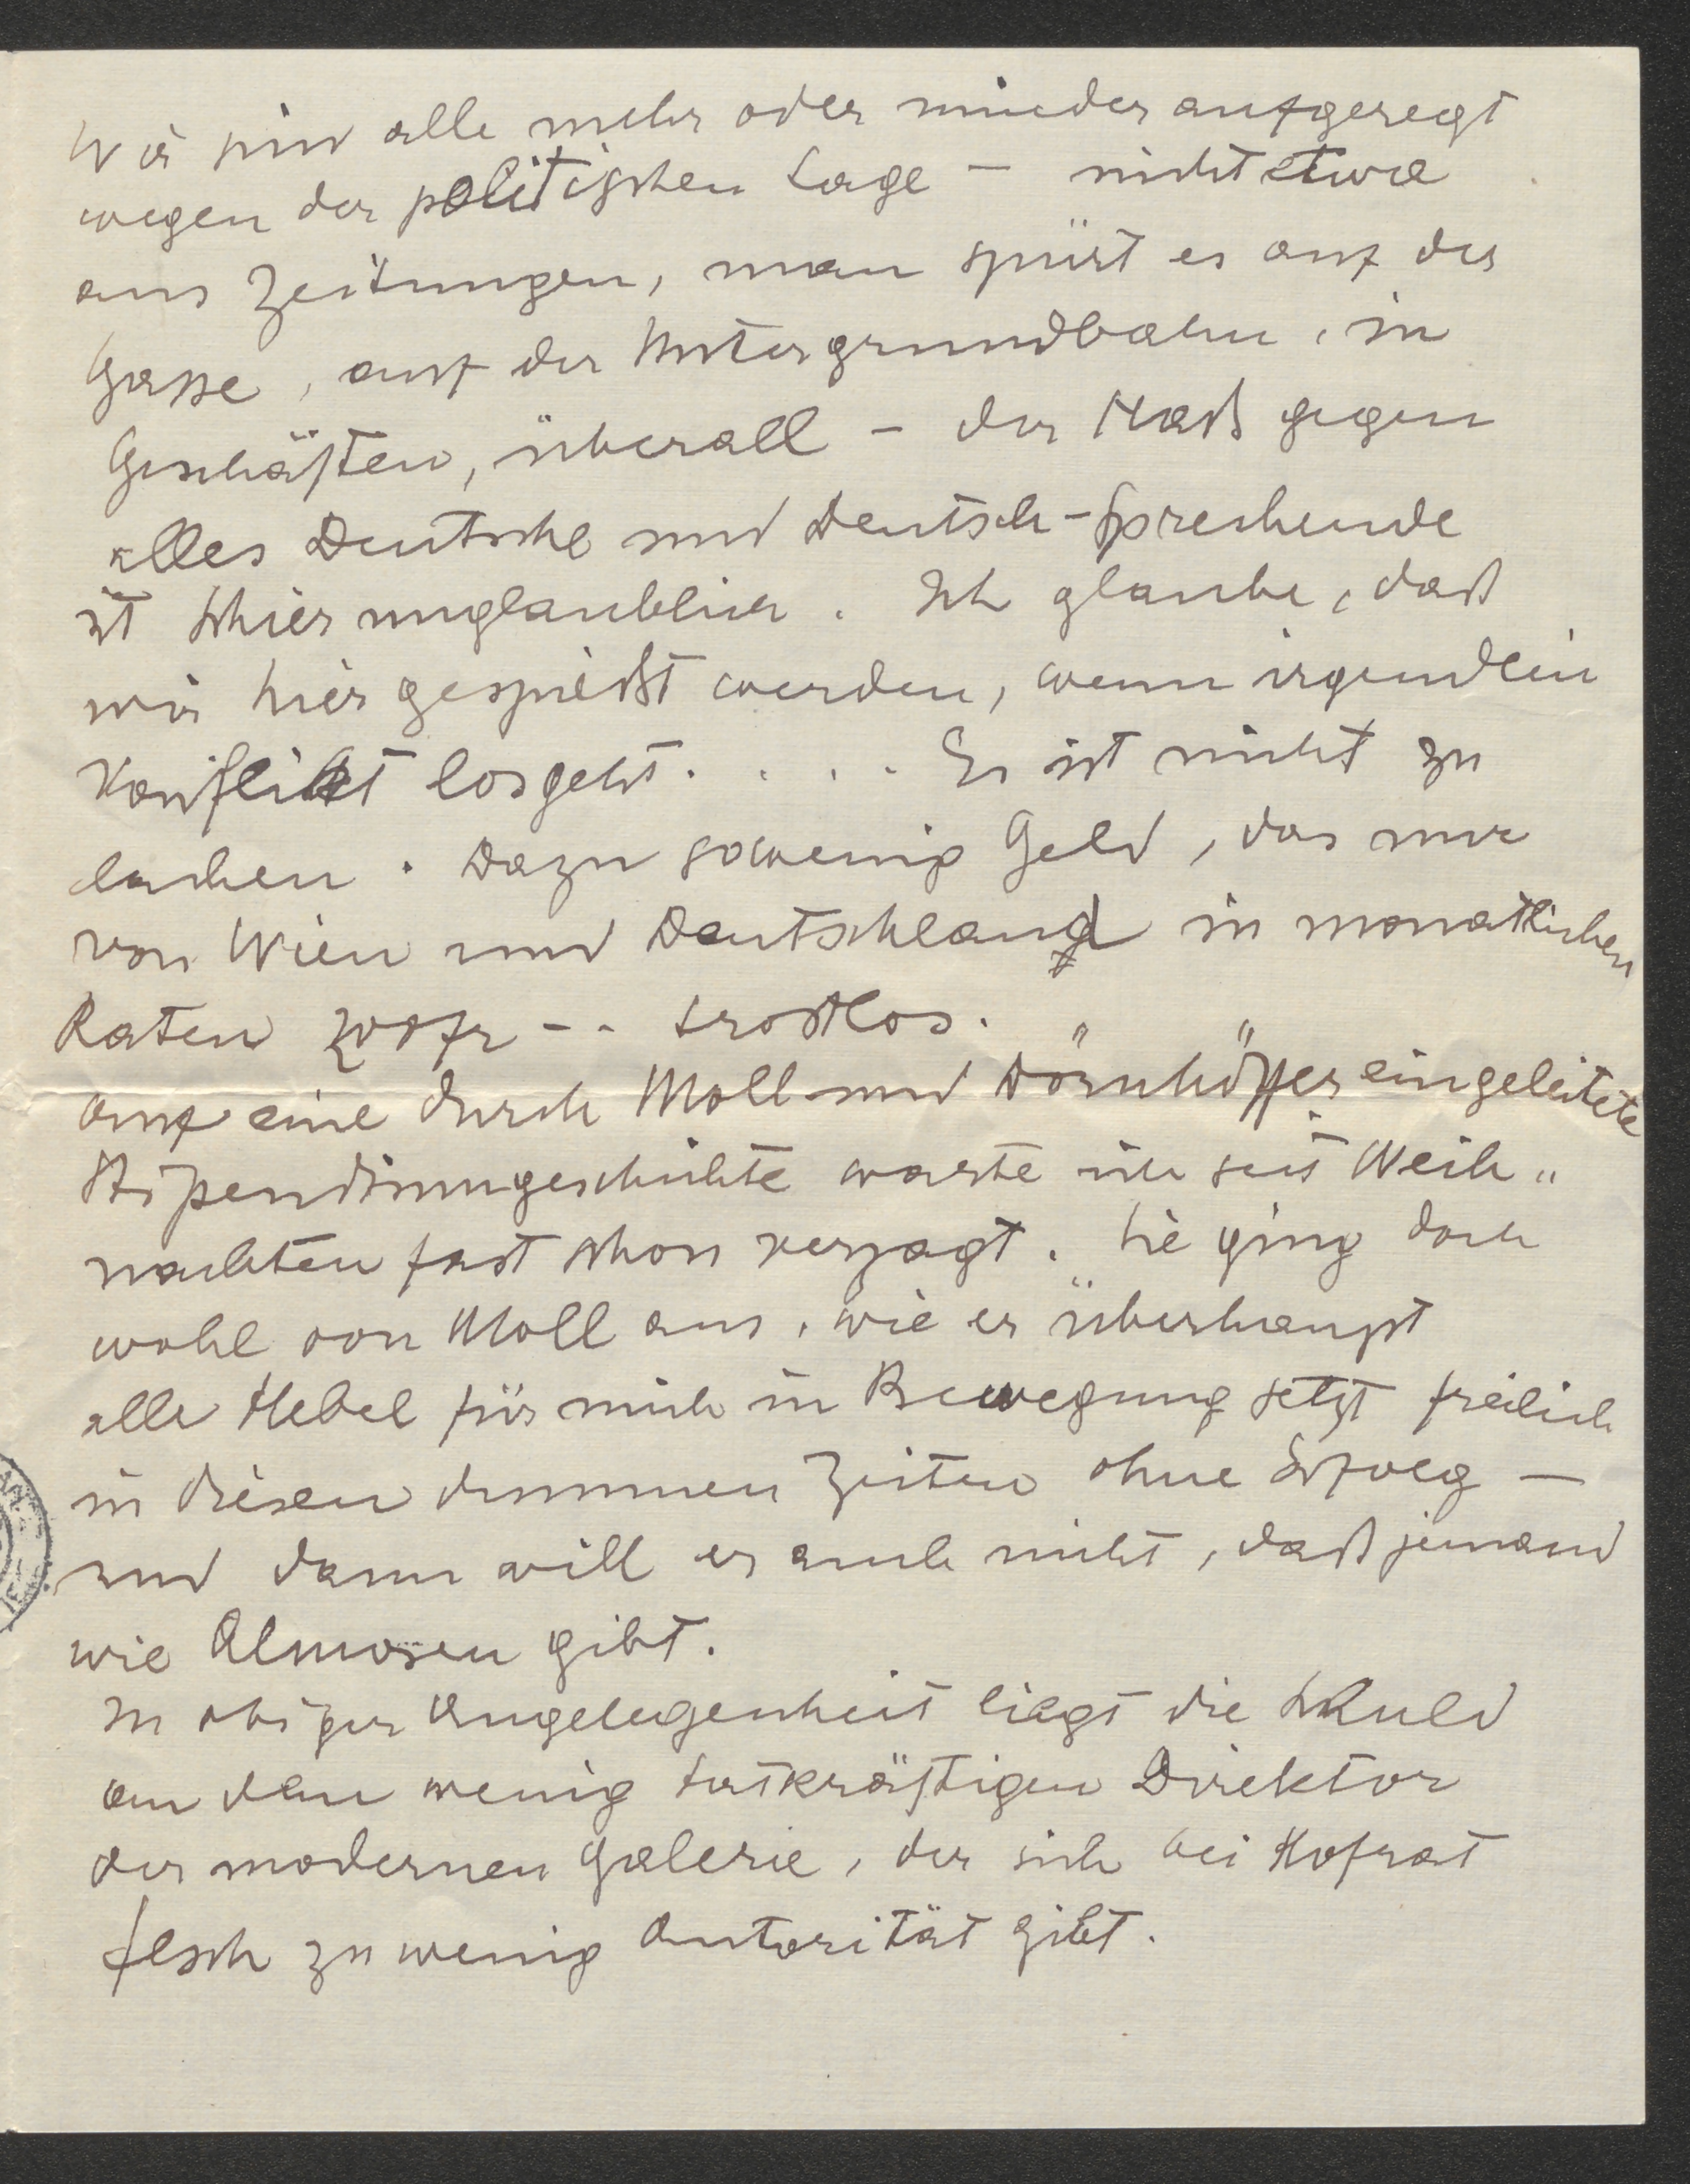 Wir sind alle mehr oder minder aufgeregt
wegen der politischen Lage – nicht etwa
aus Zeitungen, man spürt es auf der
Gasse, auf der Untergrundbahn, in
Geschäften, überall – der Haß gegen
alles Deutsche und Deutsch-sprechende
ist schier unglaublich. Ich glaube, daß
wir hier gespießt werden, wenn irgendein
Konflikt losgeht. . . . . Es ist nicht zu
lachen. Dazu sowenig Geld, das nur
von Wien und Deutschland in monatlichen
Raten -- trostlos.
Auf eine durch Moll und Dörnhöffer eingeleitete
Stipendiumgeschichte warte ich seit Weih„
nachten fast schon verzagt. Sie ging doch
wohl von Moll aus, wie er überhaupt
alle Hebel für mich in Bewegung setzt freilich
in diesen dummen Zeiten ohne Erfolg –
und dann will er auch nicht, daß jemand
wie Almosen gibt.
In obiger Angelegenheit liegt die Schuld
an dem wenig tatkräftigen Direktor
der modernen Galerie, der sich bei Hofrat
zu wenig Autorität gibt.